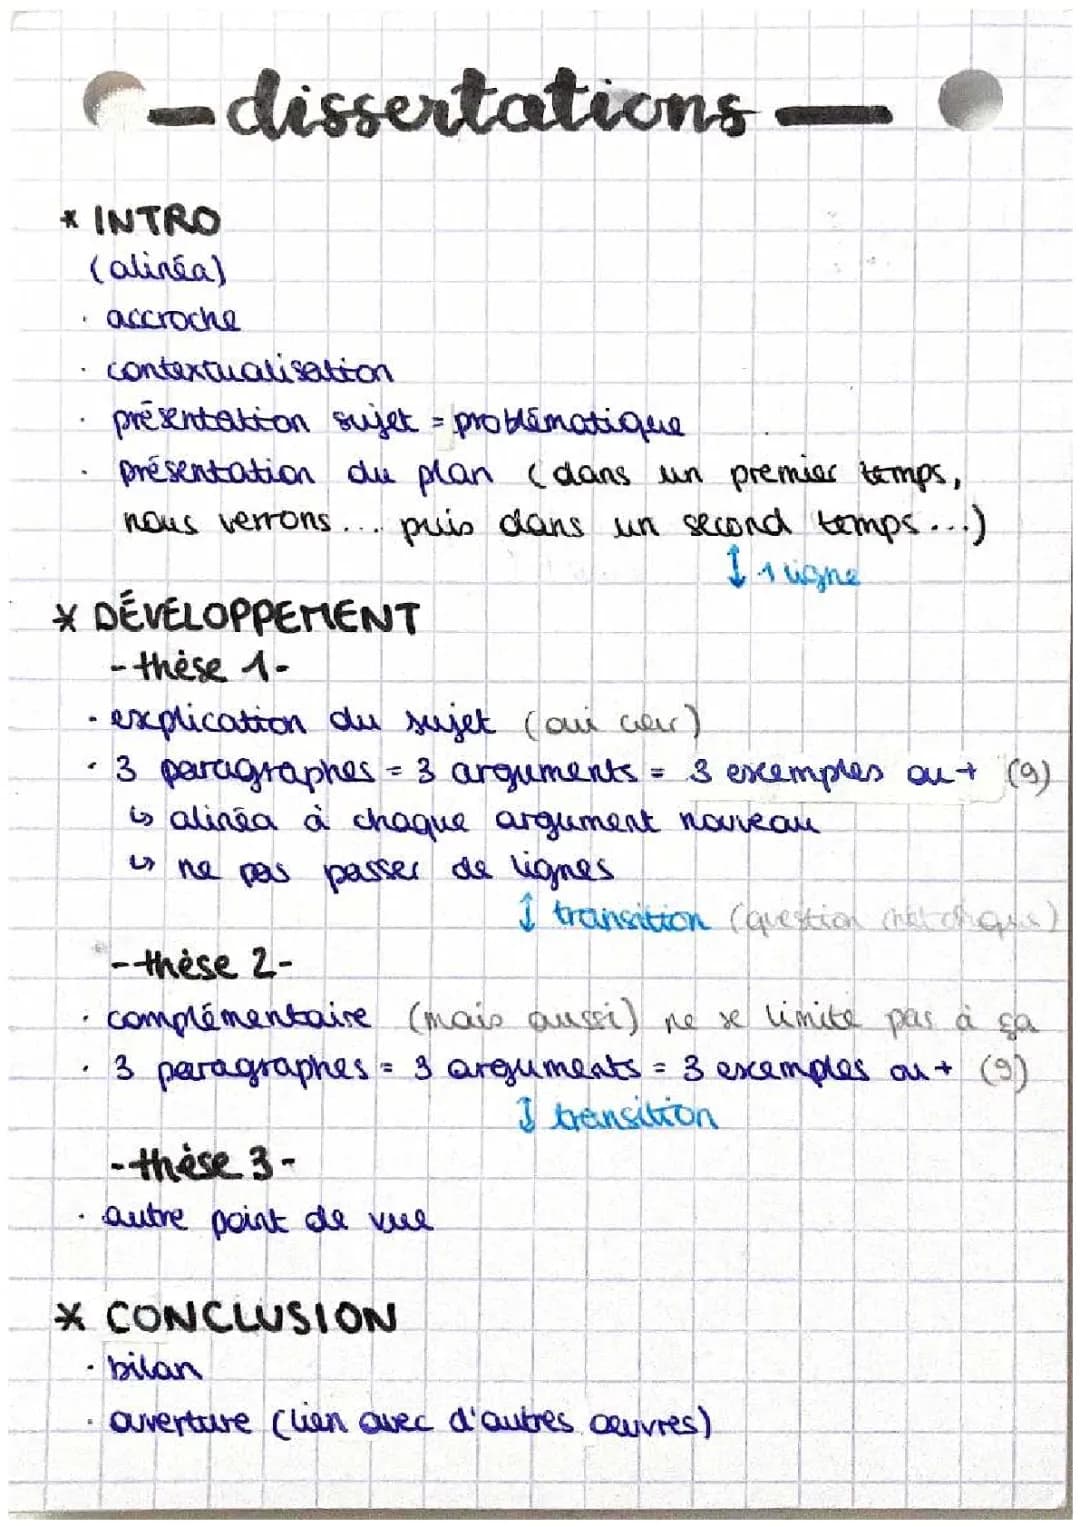 - dissertations -
* INTRO
(alinéa)
· accroche
· contextualisation
· présentation sujet = problématique
· présentation du plan (dans un premier temps,
nous verrons... puis dans un second temps...)
↕ 1 ligne
* DÉVELOPPEMENT
- thèse 1 -
· explication du sujet (oui car)
· 3 paragraphes = 3 arguments = 3 exemples ou + (9)
↳ alinéa à chaque argument nouveau
↳ ne pas passer de lignes
↕ transition (question
-- thèse 2 -
· complémentaire (mais aussi) ne se limite pas à ça
· 3 paragraphes = 3 arguments = 3 exemples ou + (9)
↕ transition
-- thèse 3 -
· autre point de vue
* CONCLUSION
· bilan
· ouverture (lien avec d'autres œuvres)